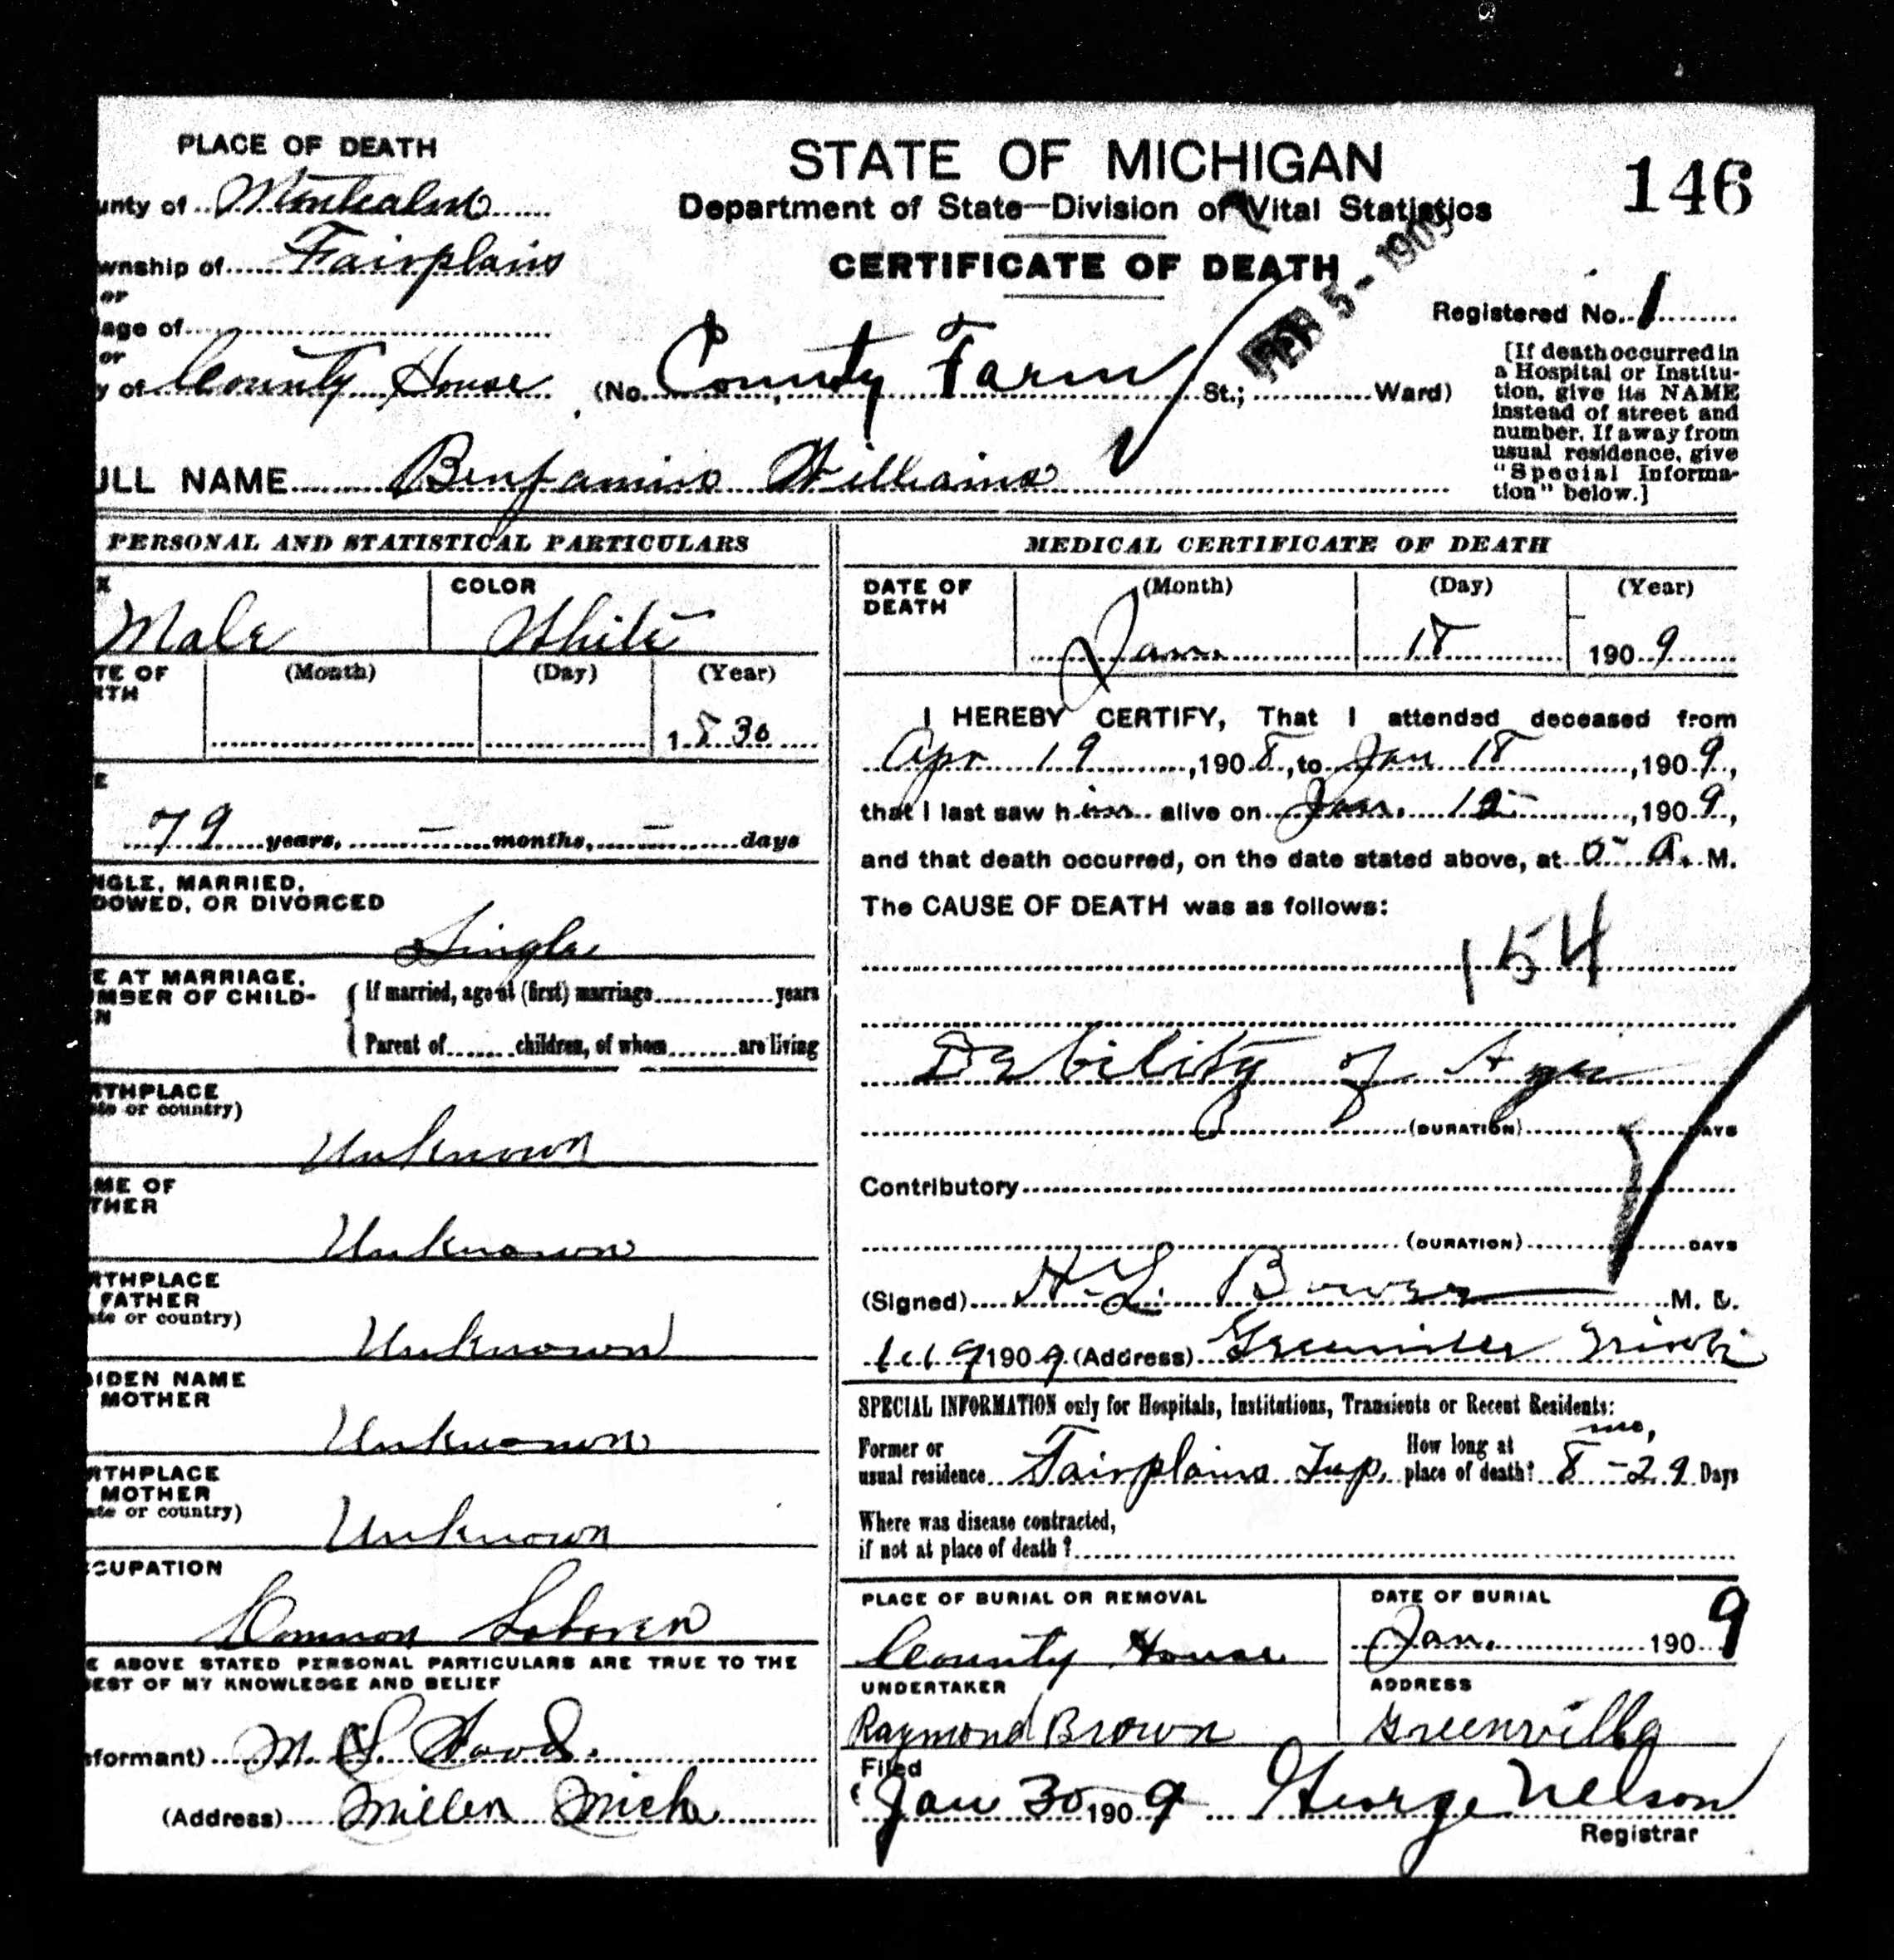 PLACE OF DEATH
unty of Montcalm
wnship of Fairplains
or
lage of
or
y of County House (No. County Farm St.; Ward)
STATE OF MICHIGAN
Department of State—Division of Vital Statistics
CERTIFICATE OF DEATH
146
FEB 5 - 1909
Registered No. 1
[If death occurred in
a Hospital or Institu-
tion, give its NAME
instead of street and
number. If away from
usual residence, give
"Special Informa-
tion" below.]
ULL NAME Benjamin Williams
PERSONAL AND STATISTICAL PARTICULARS
X
Male
COLOR
White
TE OF
RTH
(Month) (Day) (Year)
1830
E
79 years, – months, – days
NGLE, MARRIED,
DOWED, OR DIVORCED
Single
E AT MARRIAGE,
MBER OF CHILD-
N
If married, age at (first) marriage years
Parent of children, of whom are living
RTHPLACE
ate or country)
Unknown
ME OF
THER
Unknown
RTHPLACE
FATHER
ate or country)
Unknown
IDEN NAME
MOTHER
Unknown
RTHPLACE
MOTHER
ate or country)
Unknown
CUPATION
Common Laborer
E ABOVE STATED PERSONAL PARTICULARS ARE TRUE TO THE
EST OF MY KNOWLEDGE AND BELIEF
nformant) M. S. Wood.
(Address) Mich
MEDICAL CERTIFICATE OF DEATH
DATE OF
DEATH
(Month) (Day) (Year)
Jan. 18 1909
I HEREBY CERTIFY, That I attended deceased from
Apr 19, 1908, to Jan 18, 1909,
that I last saw him alive on Jan., 1909,
and that death occurred, on the date stated above, at 5 A. M.
The CAUSE OF DEATH was as follows:
154
Debility of Age
(DURATION) DAYS
Contributory
(DURATION) DAYS
(Signed) H. L. Bower M. D.
1909 (Address) Greenville Mich
SPECIAL INFORMATION only for Hospitals, Institutions, Transients or Recent Residents:
Former or
usual residence Fairplains Twp.
How long at
place of death? 8 mo, - 29 Days
Where was disease contracted,
if not at place of death?
PLACE OF BURIAL OR REMOVAL
County House
DATE OF BURIAL
Jan. 1909
UNDERTAKER
Raymond Brown
ADDRESS
Greenville
Filed
Jan 30 1909 George Nelson
Registrar